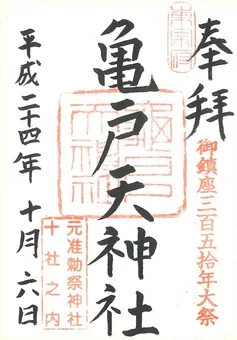 奉拝
御鎮座三百五拾年大祭
亀戸天神社
元准勅祭神社
十社之内
平成二十四年 十月六日